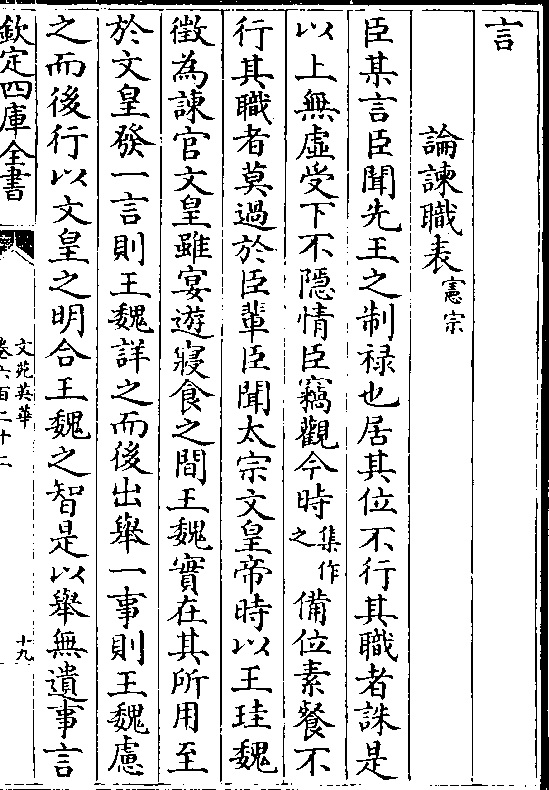 言
論諫職表憲宗
臣某言臣聞先王之制祿也居其位不行其職者誅是
以上無虛受下不隱情臣竊觀今時集作之備位素餐不
行其職者莫過於臣輩臣聞太宗文皇帝時以王珪魏
徵為諫官文皇雖宴遊寢食之間王魏實在其所用至
於文皇發一言則王魏詳之而後出舉一事則王魏慮
之而後行以文皇之明合王魏之智是以舉無遺事言
欽定四庫全書
文苑英華
卷六百二十二
十九